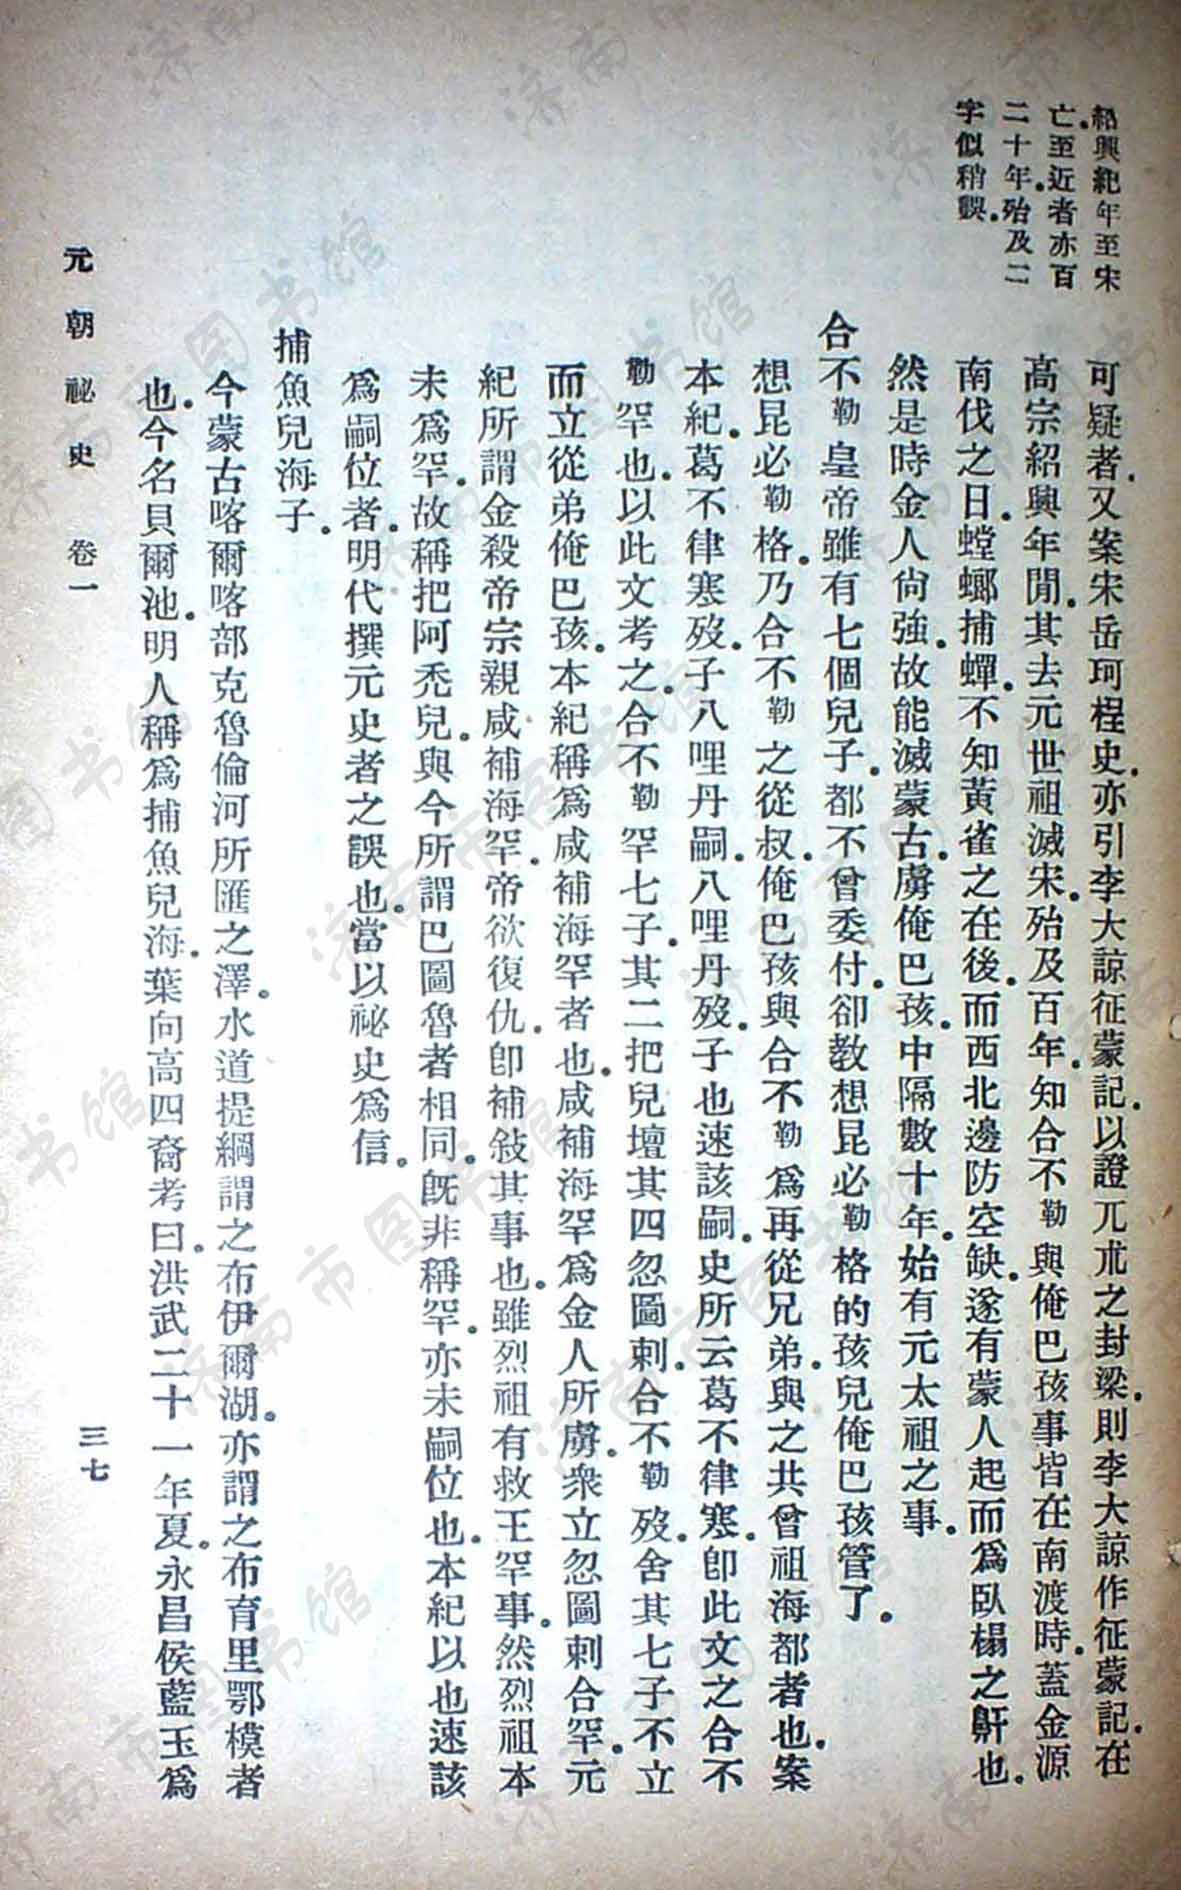 紹興紀年至宋
亡至近者亦百
二十年殆及二
字似稍誤。
可疑者。又案宋岳珂桯史。亦引李大諒征蒙記。以證兀朮之封梁。則李大諒作征蒙記。在
高宗紹興年閒。其去元世祖滅宋。殆及百年。知合不勒與俺巴孩事皆在南渡時。蓋金源
南伐之日。螳螂捕蟬。不知黃雀之在後。而西北邊防空缺。遂有蒙人起而爲臥榻之鼾也。
然是時金人尙強。故能滅蒙古。虜俺巴孩。中隔數十年。始有元太祖之事。
合不勒皇帝雖有七個兒子。都不曾委付。卻教想昆必勒格的孩兒俺巴孩管了。
想昆必勒格。乃合不勒之從叔。俺巴孩與合不勒爲再從兄弟。與之共曾祖海都者也。案
本紀。葛不律寒歿。子八哩丹嗣。八哩丹歿。子也速該嗣。史所云葛不律寒。卽此文之合不
勒罕也。以此文考之。合不勒罕七子。其二把兒壇其四忽圖剌。合不勒歿。舍其七子不立
而立從弟俺巴孩。本紀稱爲咸補海罕者也。咸補海罕爲金人所虜。衆立忽圖剌合罕。元
紀所謂金殺帝宗親咸補海罕。帝欲復仇。卽補敍其事也。雖烈祖有救王罕事。然烈祖本
未爲罕。故稱把阿禿兒。與今所謂巴圖魯者相同。旣非稱罕。亦未嗣位也。本紀以也速該
爲嗣位者。明代撰元史者之誤也。當以祕史爲信。
捕魚兒海子。
今蒙古喀爾喀部克魯倫河所匯之澤。水道提綱謂之布伊爾湖。亦謂之布育里鄂模者
也。今名貝爾池。明人稱爲捕魚兒海。葉向高四裔考曰。洪武二十一年夏。永昌侯藍玉爲
元朝祕史 卷一 三七
济南市图书馆